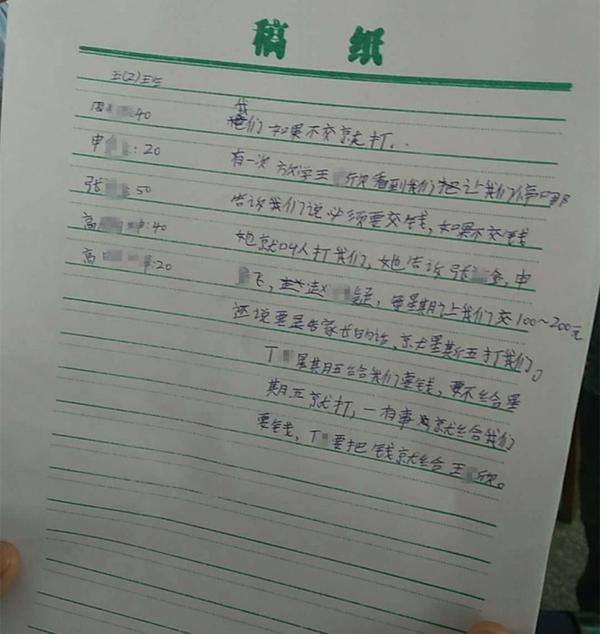 稿 纸
五(2)班
周 40
我们如果不交就打..
申 : 20
有一次放学王 欣看到我们把让我们停
张 : 50
告诉我们说必须要交钱,如果不交钱
高 : 40
她就叫人打我们,她告诉张 ,申
高 : 20
飞, 每星期让我们交100~200元
还说要是告家长的话,就星期五打我们。
丁 星期五给我们要钱,要不给星
期五就打,一有事 就给我们
要钱,丁 要把钱就给王 欣。